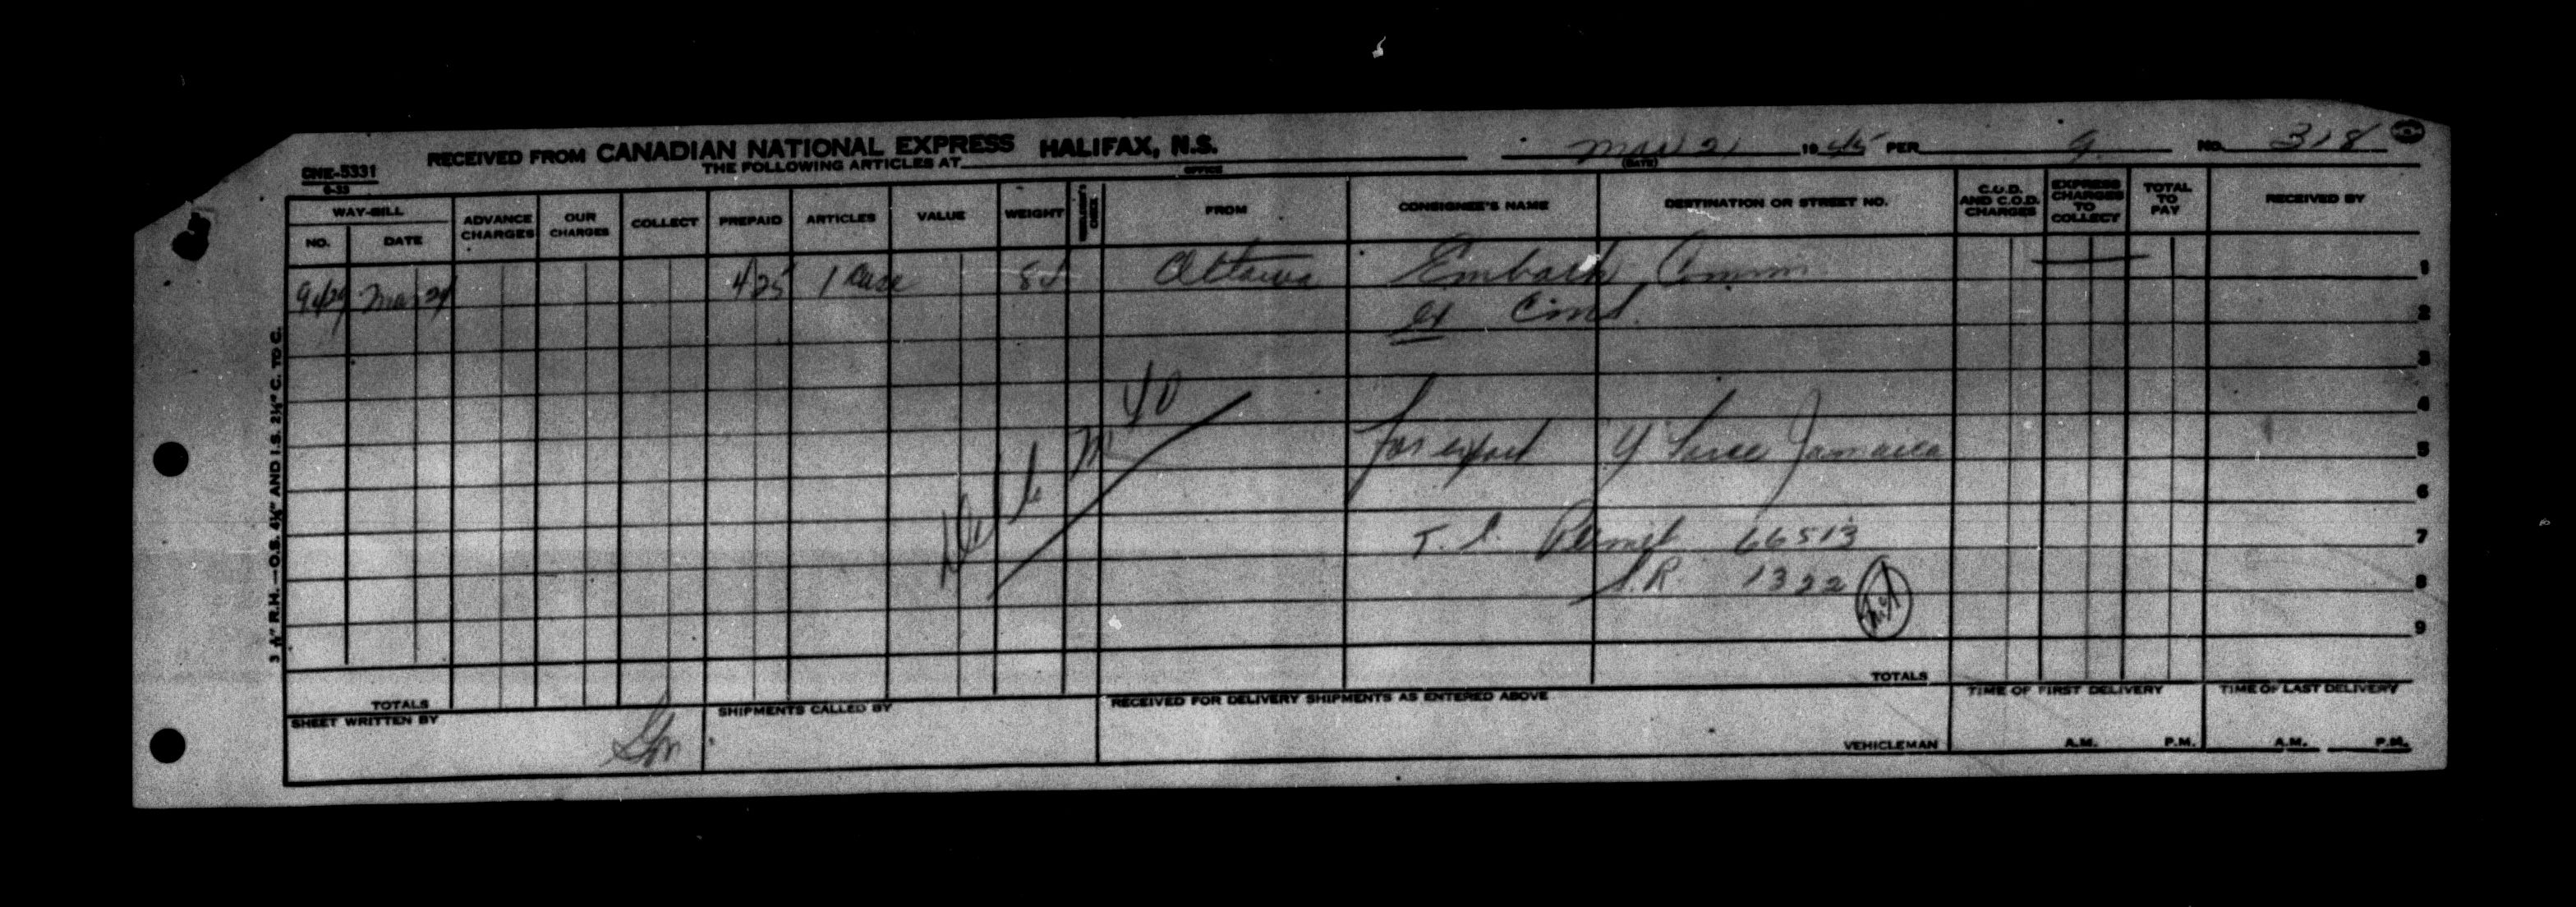 RECEIVED FROM CANADIAN NATIONAL EXPRESS HALIFAX, N.S.
THE FOLLOWING ARTICLES AT
OFFICE
(DATE) 1945 PER G. NO. 318
CNE-5331
WAY-BILL
NO. DATE ADVANCE CHARGES OUR CHARGES COLLECT PREPAID ARTICLES VALUE WEIGHT CHECK FROM CONSIGNEE'S NAME DESTINATION OR STREET NO. C.O.D. AND C.O.D. CHARGES EXPRESS CHARGES TO COLLECT TOTAL TO PAY RECEIVED BY
4 25 1 Case Ottawa Embark Comm 1
2
3
4
for export Jamaica 5
6
T. C. Permit 66513 7
S.R. 1322 8
9
TOTALS
TOTALS
SHEET WRITTEN BY
SHIPMENTS CALLED BY
RECEIVED FOR DELIVERY SHIPMENTS AS ENTERED ABOVE
VEHICLEMAN
TIME OF FIRST DELIVERY
A.M. P.M.
TIME OF LAST DELIVERY
A.M. P.M.
3 R.H.—O.S. AND I.S. C. TO C.